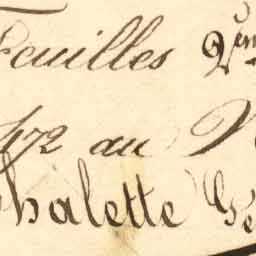 Feuilles 2ème
472 au N
Chalette Gé